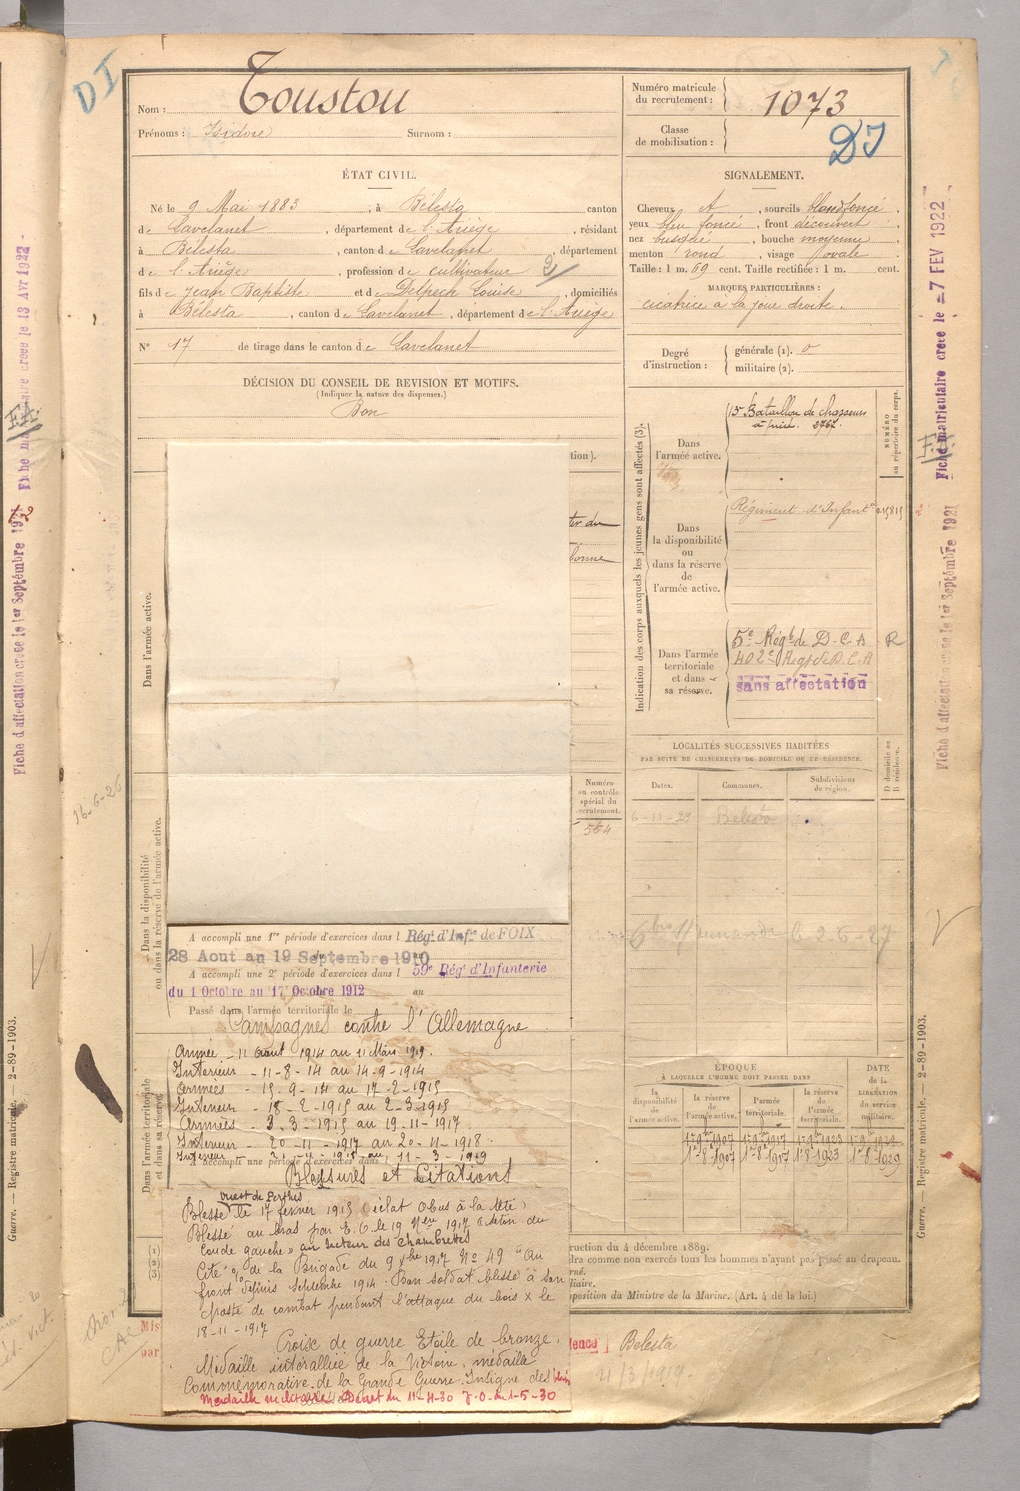 DI
Nom : Toustou
Prénoms : Isidore Surnom :
Numéro matricule
du recrutement : 1073
Classe
de mobilisation :
DI
ÉTAT CIVIL.
Né le 9 Mai 1883, à Bélesta canton
de Lavelanet, département de l'Ariège, résidant
à Bélesta, canton de Lavelanet, département
de l'Ariège, profession de cultivateur 2
fils de Jean Baptiste et de Delpech Louise, domiciliés
à Bélesta, canton de Lavelanet, département de l'Ariège
N° 17 de tirage dans le canton de Lavelanet
DÉCISION DU CONSEIL DE REVISION ET MOTIFS.
(Indiquer la nature des dispenses.)
Bon
SIGNALEMENT.
Cheveux, sourcils blond foncé,
yeux bleu foncé, front découvert
nez busqué, bouche moyenne
menton rond, visage ovale
Taille : 1 m. 69 cent. Taille rectifiée : 1 m. cent.
MARQUES PARTICULIÈRES :
cicatrice à la joue droite.
Degré
d'instruction :
générale (1). 0
militaire (2).
Indication des corps auxquels les jeunes gens sont affectés (3).
NUMÉRO
au répertoire du corps.
Dans
l'armée active.
15e Bataillon de chasseurs
à pied. 2767.
Dans
la disponibilité
ou
dans la réserve
de
l'armée active.
Régiment d'Infant
Dans l'armée
territoriale
et dans
sa réserve.
5e Régt de D.C.A. R
402e Regt de D.C.A
sans affectation
LOCALITÉS SUCCESSIVES HABITÉES
PAR SUITE DE CHANGEMENTS DE DOMICILE OU DE RÉSIDENCE.
D domicile ou
R résidence.
Dates. Communes. Subdivisions
de région.
6-11-27 Belesta
le 2 6 27
ÉPOQUE
À LAQUELLE L'HOMME DOIT PASSER DANS
la
disponibilité
de
l'armée active.
la réserve
de
l'armée active.
l'armée
territoriale.
la réserve
de l'armée
territoriale.
DATE
de la
LIBÉRATION
du service
militaire.
1er 8bre 1907 1er 8bre 1917 1er 8bre 1923 1er 8bre 1929
1er 8 1907 1er 8 1917 1er 8 1923 1er 8 1929
tion).
Dans l'armée active.
Numéro
au contrôle
spécial du
recrutement.
564
Dans la disponibilité
ou dans la réserve de l'armée active.
A accompli une 1re période d'exercices dans l Régt d'Infie de FOIX
28 Aout au 19 Septembre 1910
A accompli une 2e période d'exercices dans l 59e Régt d'Infanterie
du 1 Octobre au 17 Octobre 1912 au
Passé dans l'armée territoriale le
Dans l'armée territoriale
et dans sa réserve.
Campagnes contre l'Allemagne
Armée - 11 août 1914 au 11 Mars 1919.
Intérieur - 11-8-14 au 14-9-1914
Armées - 15-9-14 au 17-2-1915
Intérieur - 18-2-1915 au 2-3-1915
Armées - 3-3-1915 au 19-11-1917
Intérieur - 20-11-1917 au 20-11-1918
Intérieur 21-11-1918 au 11-3-1919
A accompli une période d'exercices dans l
Blessures et Citations
ouest de Perthes
Blessé le 17 février 1915 (éclat obus à la tête)
Blessé au bras par E.O. le 19 9bre 1917
coude gauche" au secteur des Chambrettes
Cité % de la Brigade du 9 Xbre 1917 N° 49 "Au
front depuis septembre 1914. Bon soldat blessé à son
poste de combat pendant l'attaque du bois X le
18-11-1917
Croix de guerre Etoile de bronze.
Médaille interalliée de la Victoire, médaille
Commémorative de la Grande Guerre. Insigne des
Médaille militaire Décret du 11-4-30 J.O. du 1-5-30
(1)
(2)
(3)
ruction du 4 décembre 1889.
dra comme non exercés tous les hommes n'ayant pas passé au drapeau.
rné.
iliaire.
sposition du Ministre de la Marine. (Art. 4 de la loi.)
Belesta
21/3/1919
Guerre. — Registre matricule. — 2-89-1903.
Guerre. — Registre matricule. 2-89-1903.
Fiche matriculaire créée le 13 AVR 1922
Fiche d'affectation créée le 1er Septembre 1921
Fiche matriculaire créée le 7 FEV 1922
Fiche d'affectation créée le 1er Septembre 1921
16-6-26